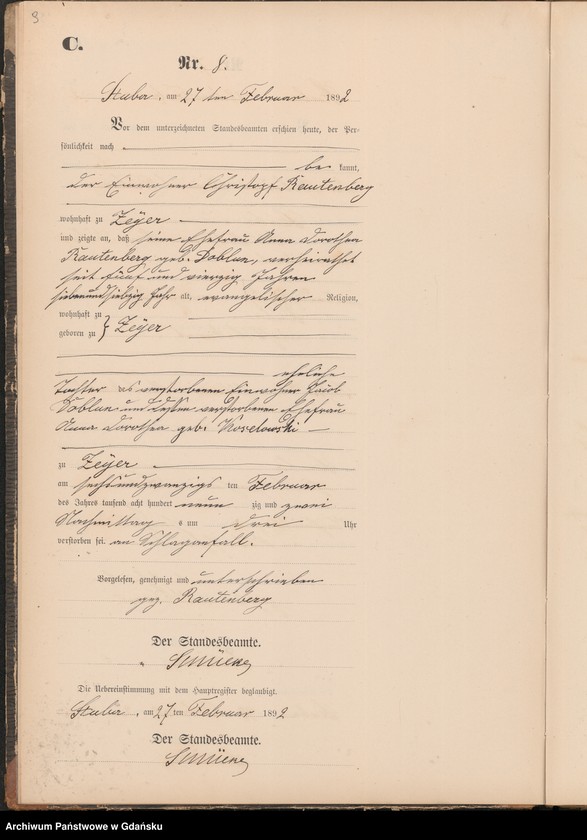 9
C.
Nr. 8.
Stuba, am 27 ten Februar 1892
Vor dem unterzeichneten Standesbeamten erschien heute, der Per-
sönlichkeit nach
be kannt,
der Einwohner Christopf Rautenberg
wohnhaft zu Zeÿer
und zeigte an, daß seine Ehefrau Anna Dorothea
Rautenberg geb. Doblun, verheirathet
seit fünf und vierzig Jahren
siebenundsiebzig Jahr alt, evangelischer Religion,
wohnhaft zu
geboren zu } Zeÿer
eheliche
Tochter des verstorbenen Einwohner Jacob
Doblun und dessen verstorbenen Ehefrau
Anna Dorothea geb.
zu Zeÿer
am sechsundzwanzigs ten Februar
des Jahres tausend acht hundert neun zig und zwei
Nachmittag s um drei Uhr
verstorben sei. an Schlaganfall.
Vorgelesen, genehmigt und unterschrieben
gez. Rautenberg
Der Standesbeamte.
Die Uebereinstimmung mit dem Hauptregister beglaubigt.
Stuba, am 27 ten Februar 1892
Der Standesbeamte.
Archiwum Państwowe w Gdańsku